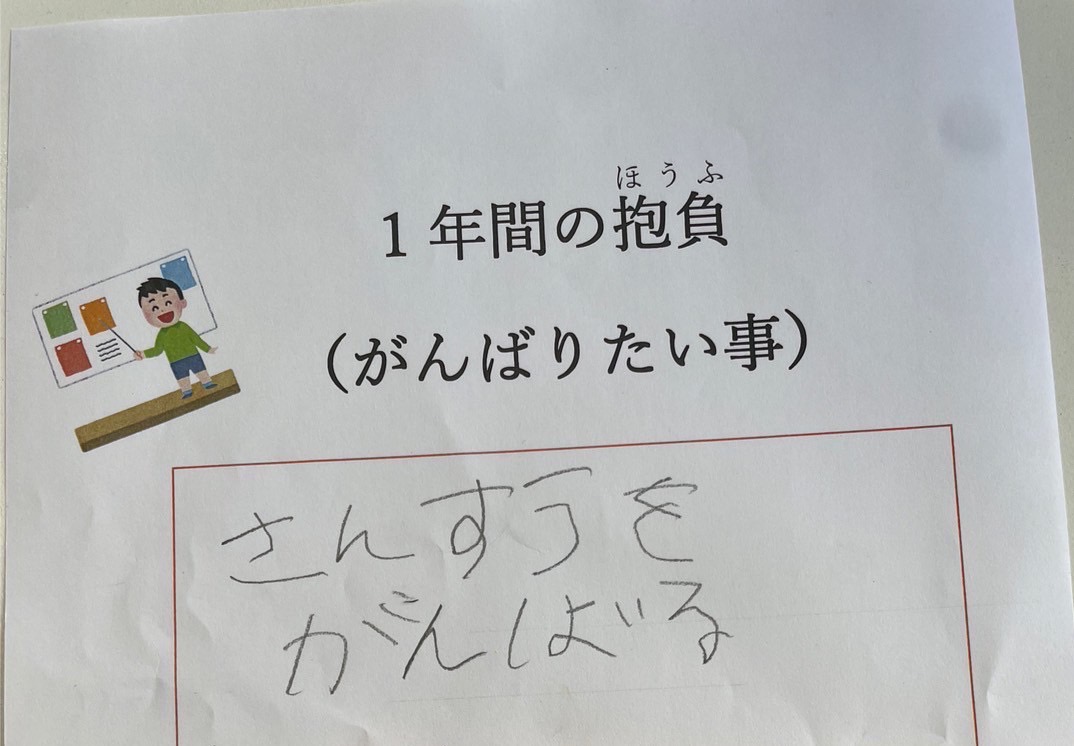 ほうふ
1年間の抱負
（がんばりたい事）
さんすうを
がんばる